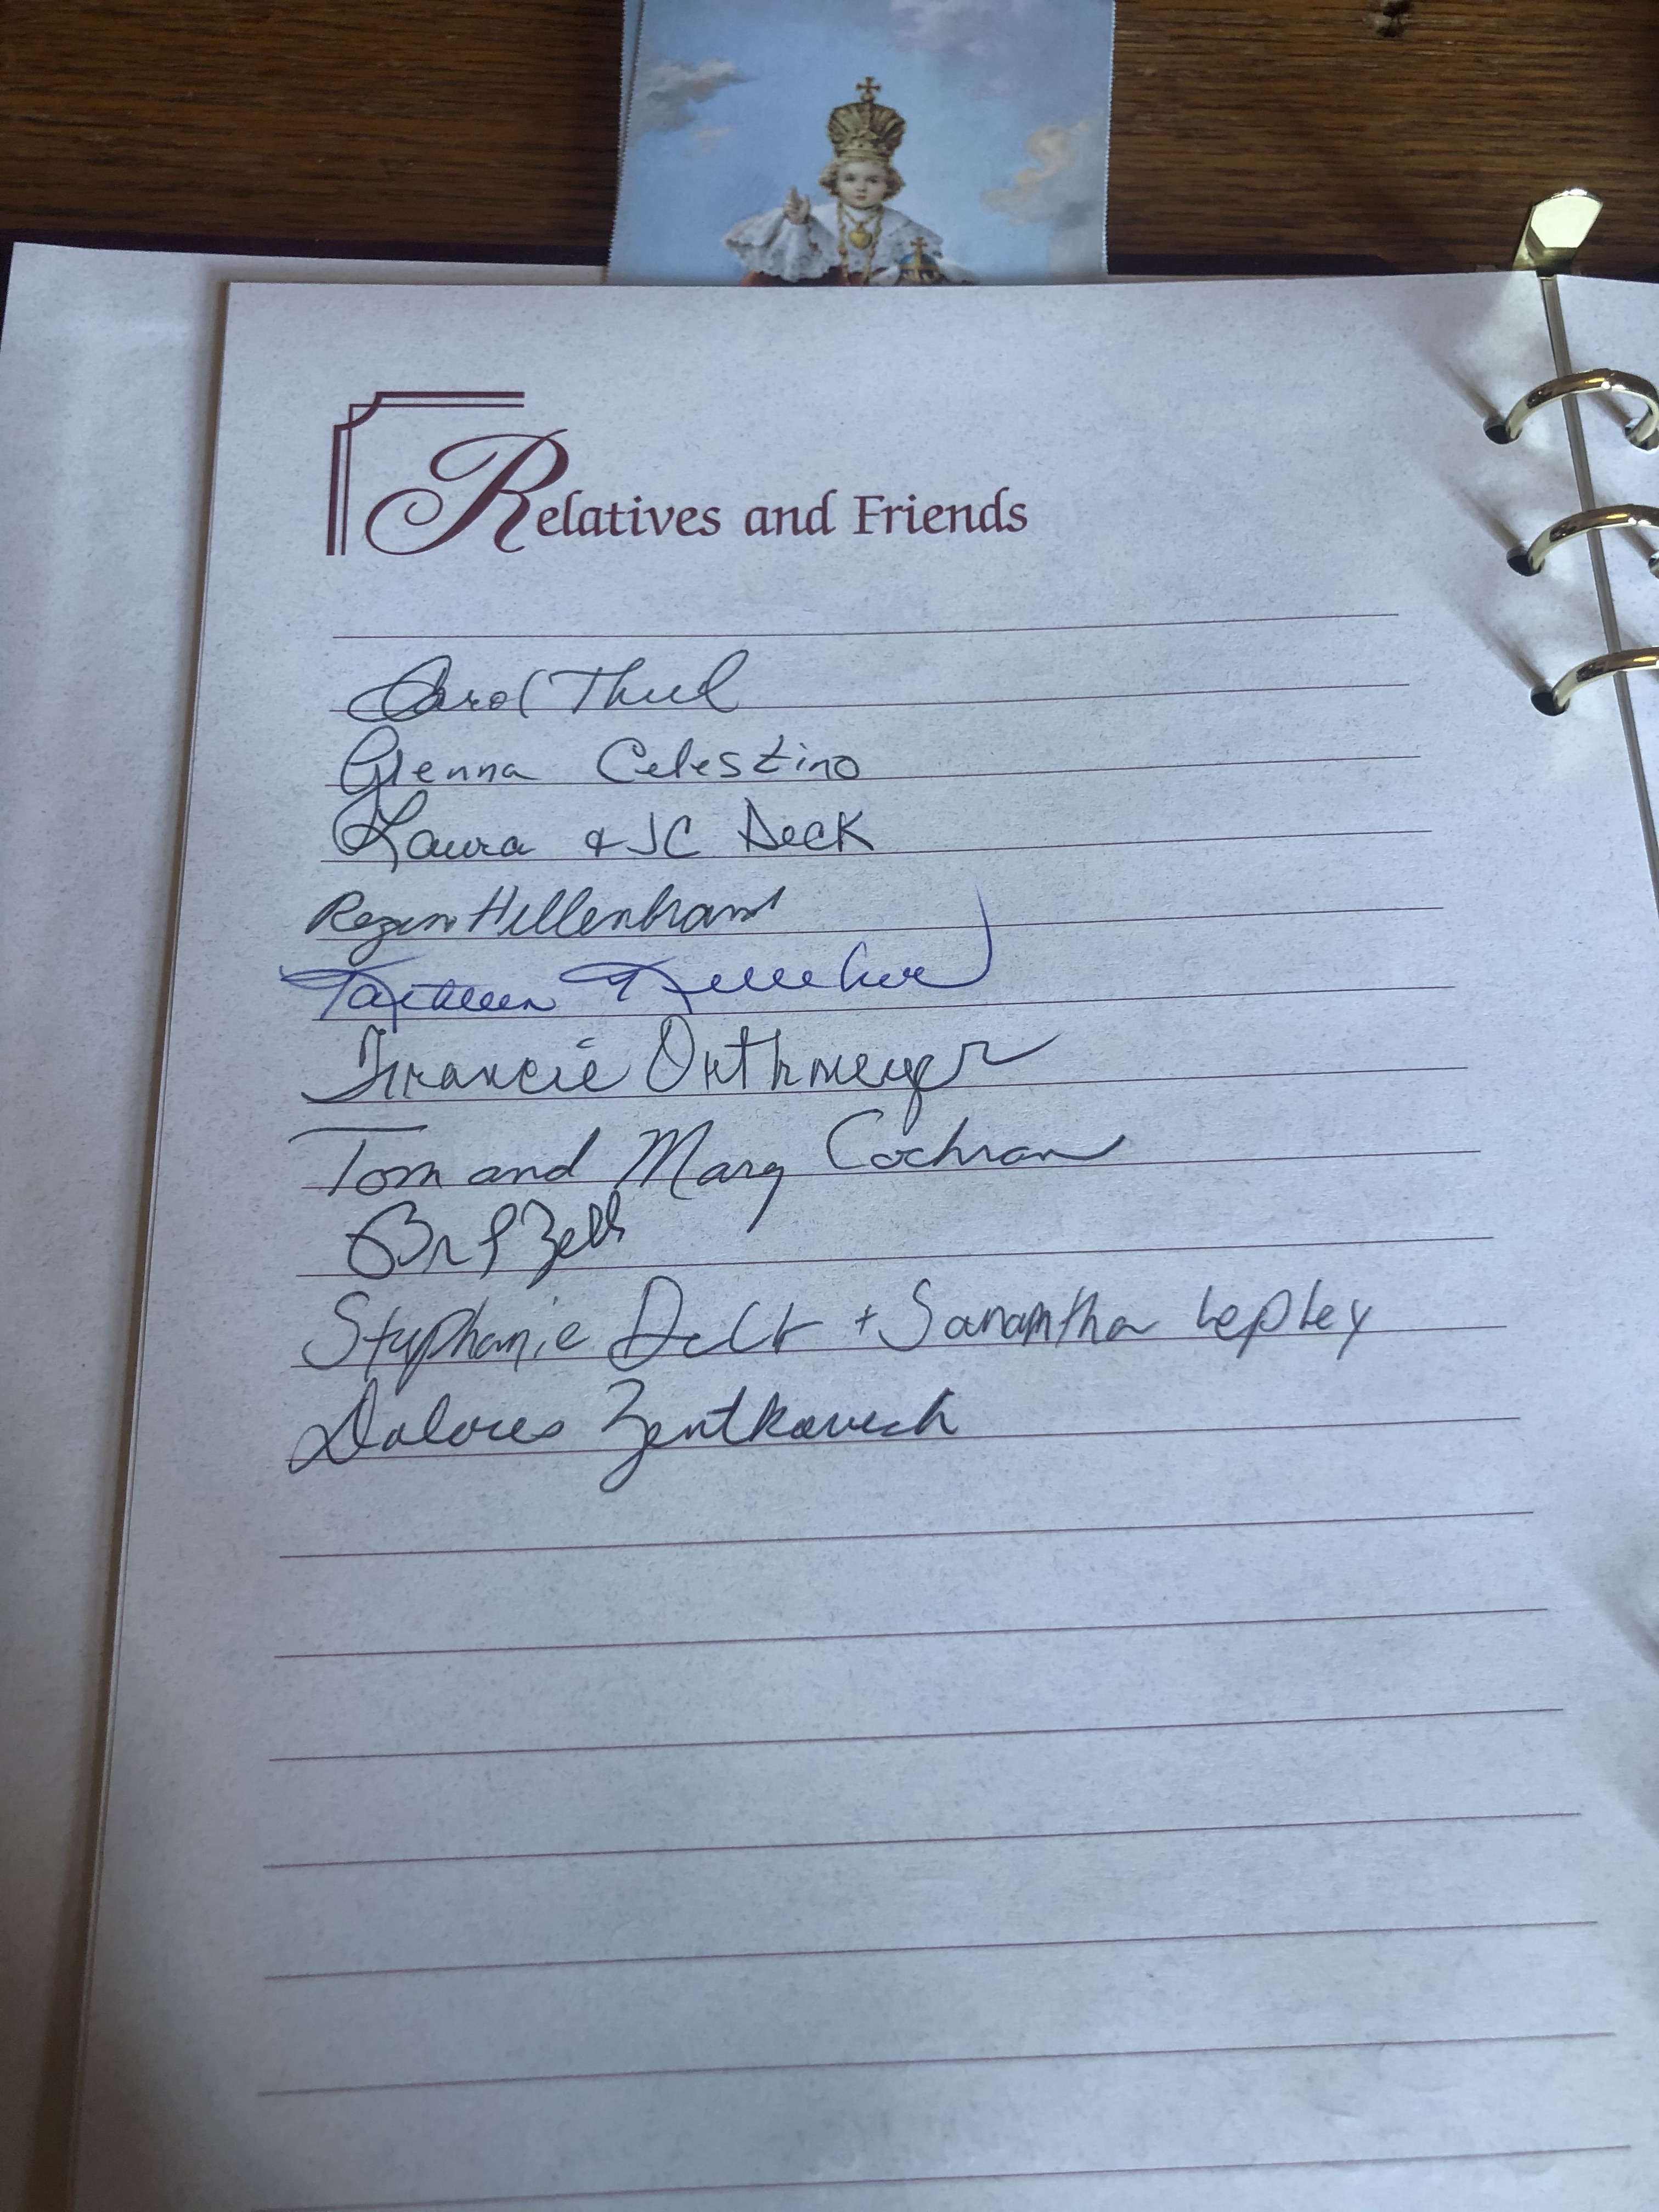 Relatives and Friends
Carol Thiel
Glenna Celestino
Laura & JC Deck
Hillenbrand
Kathleen
Francie Orthmeyer
Tom and Mary Cochran
Stephanie + Samantha Lepley
Dolores Zentkovich